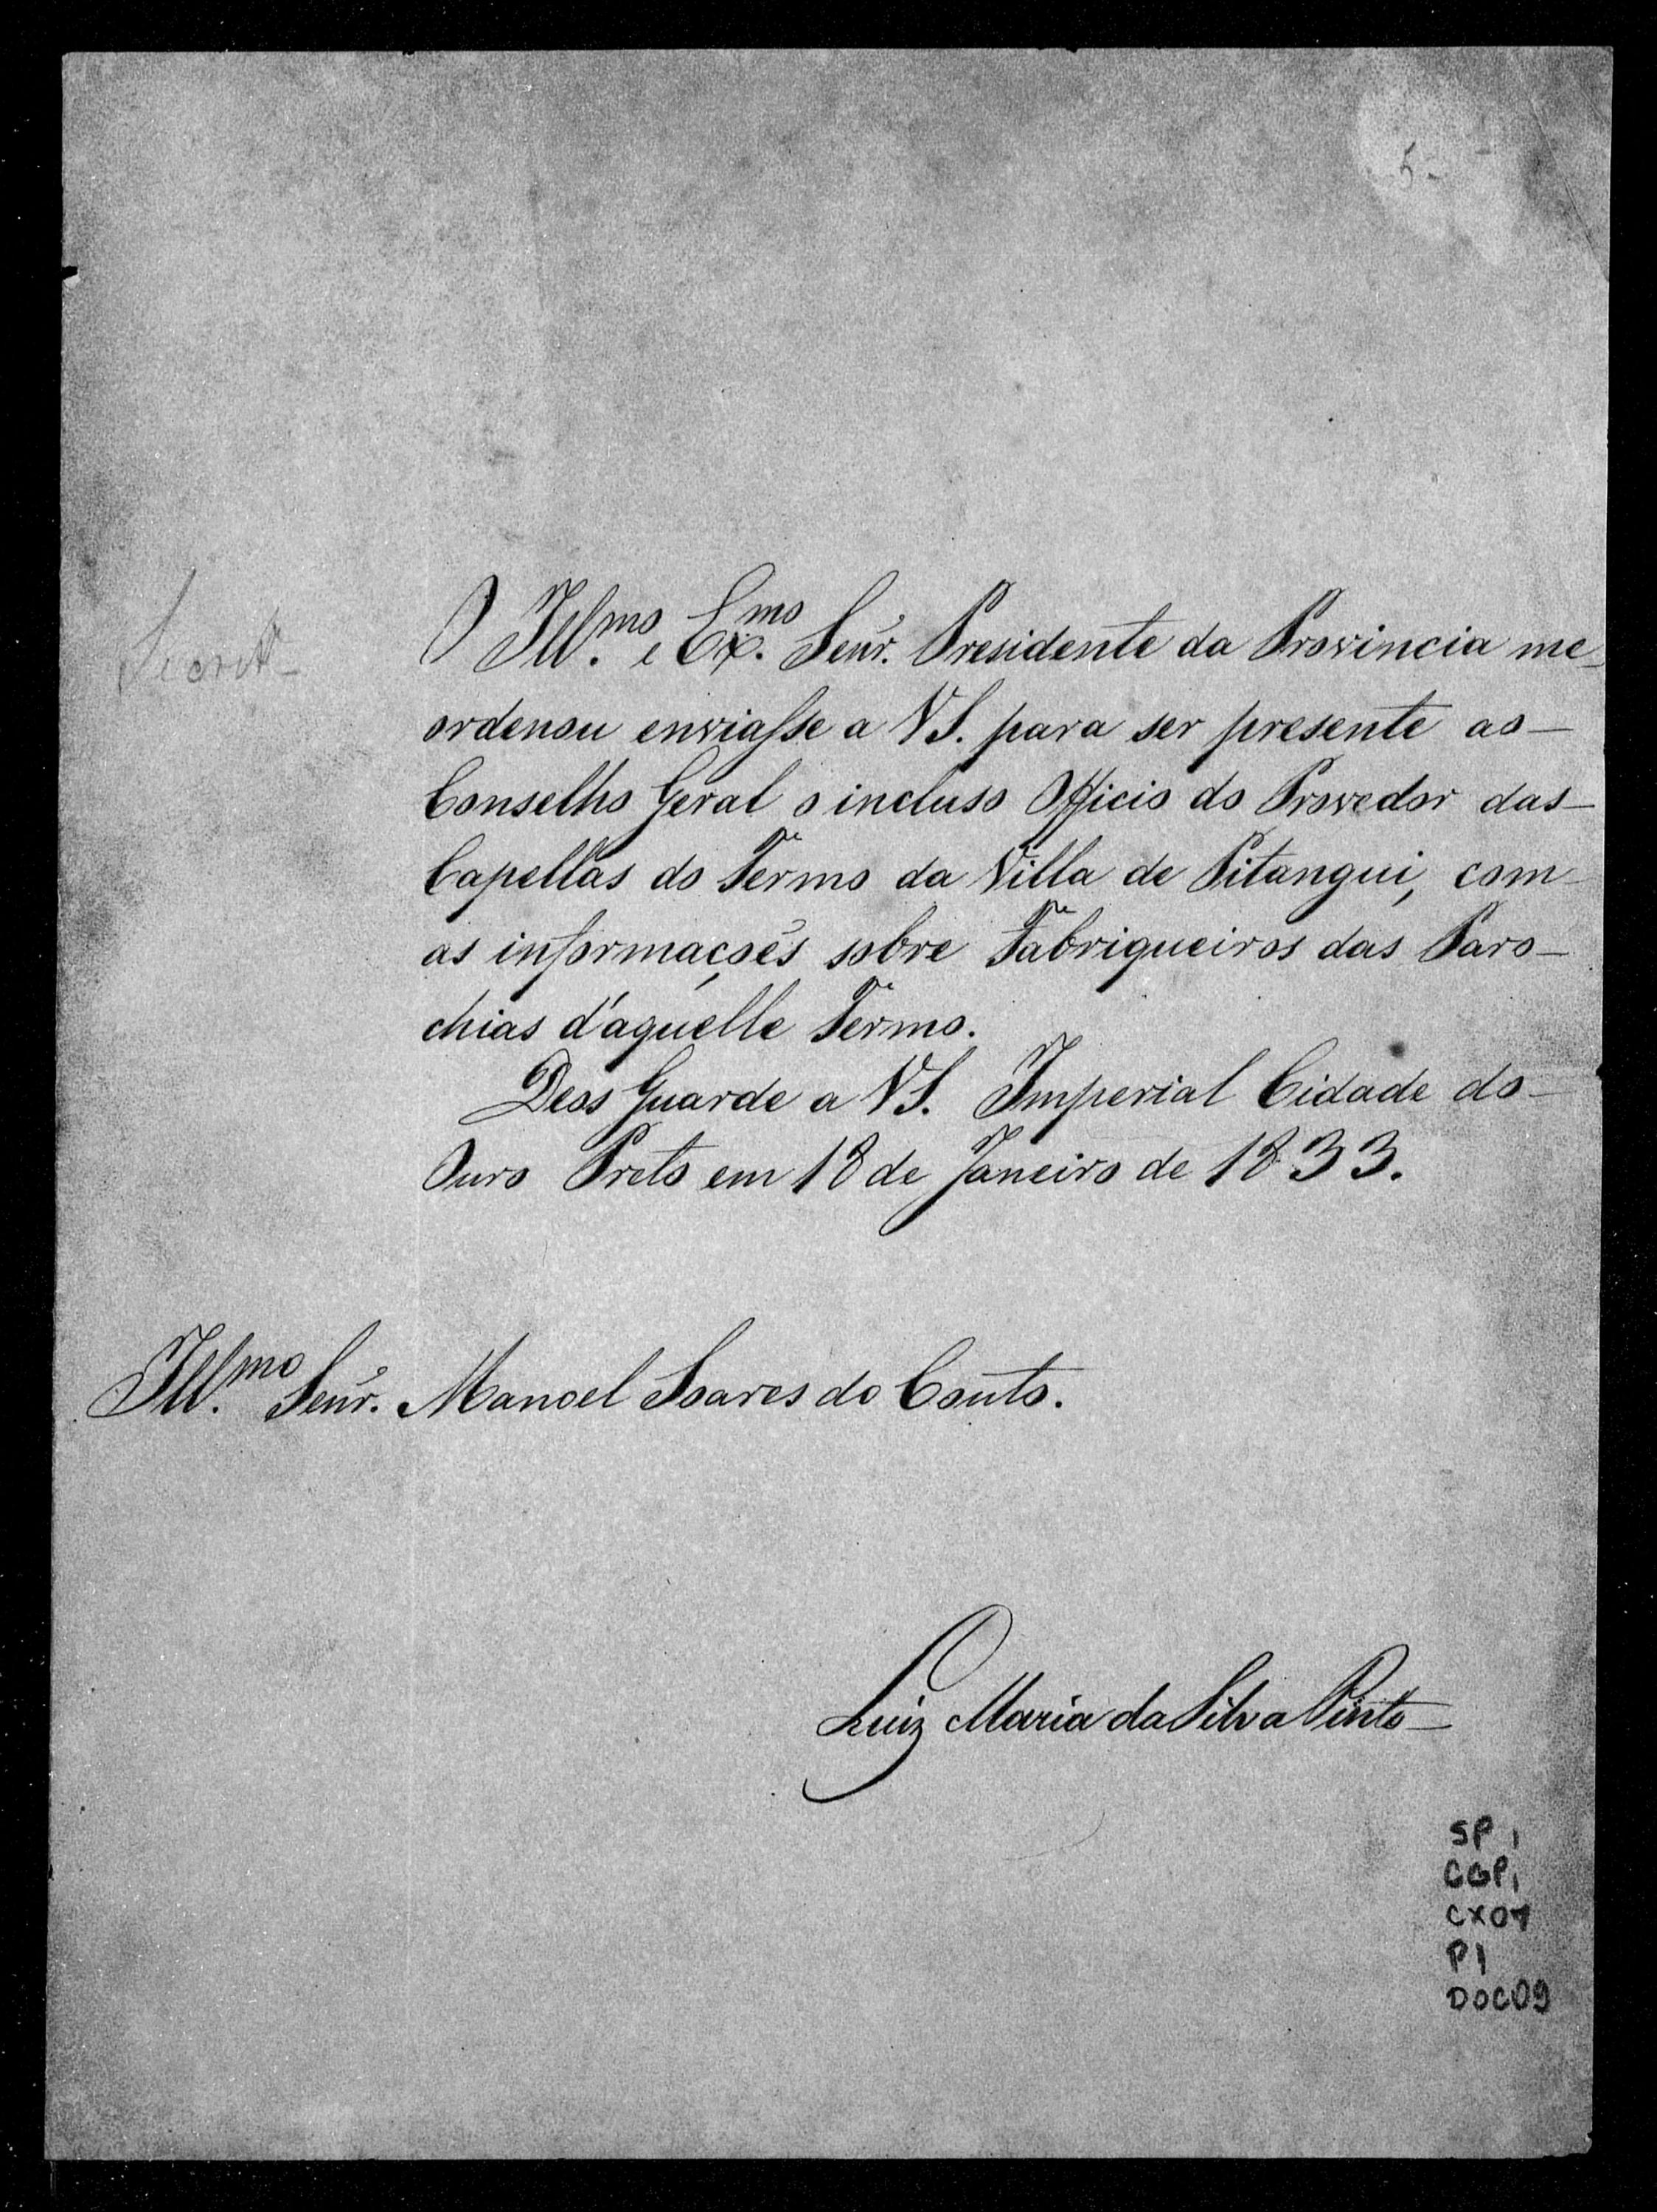 5-
O Ill.mo e Ex.mo Senr. Presidente da Provincia me
ordenou enviasse a VS. para ser presente ao
Conselho Geral o incluso Officio do Provedor das
Capellas do Termo da Villa de Pitangui, com
as informações sobre Fabriqueiros das Paro-
chias d'aquelle Termo.
Deos Guarde a VS. Imperial Cidade do
Ouro Preto em 18 de Janeiro de 1833.
Ill.mo Senr. Manoel Soares do Couto.
Luiz Maria da Silva Pinto
SP 1
CGP1
CX07
P1
DOC09